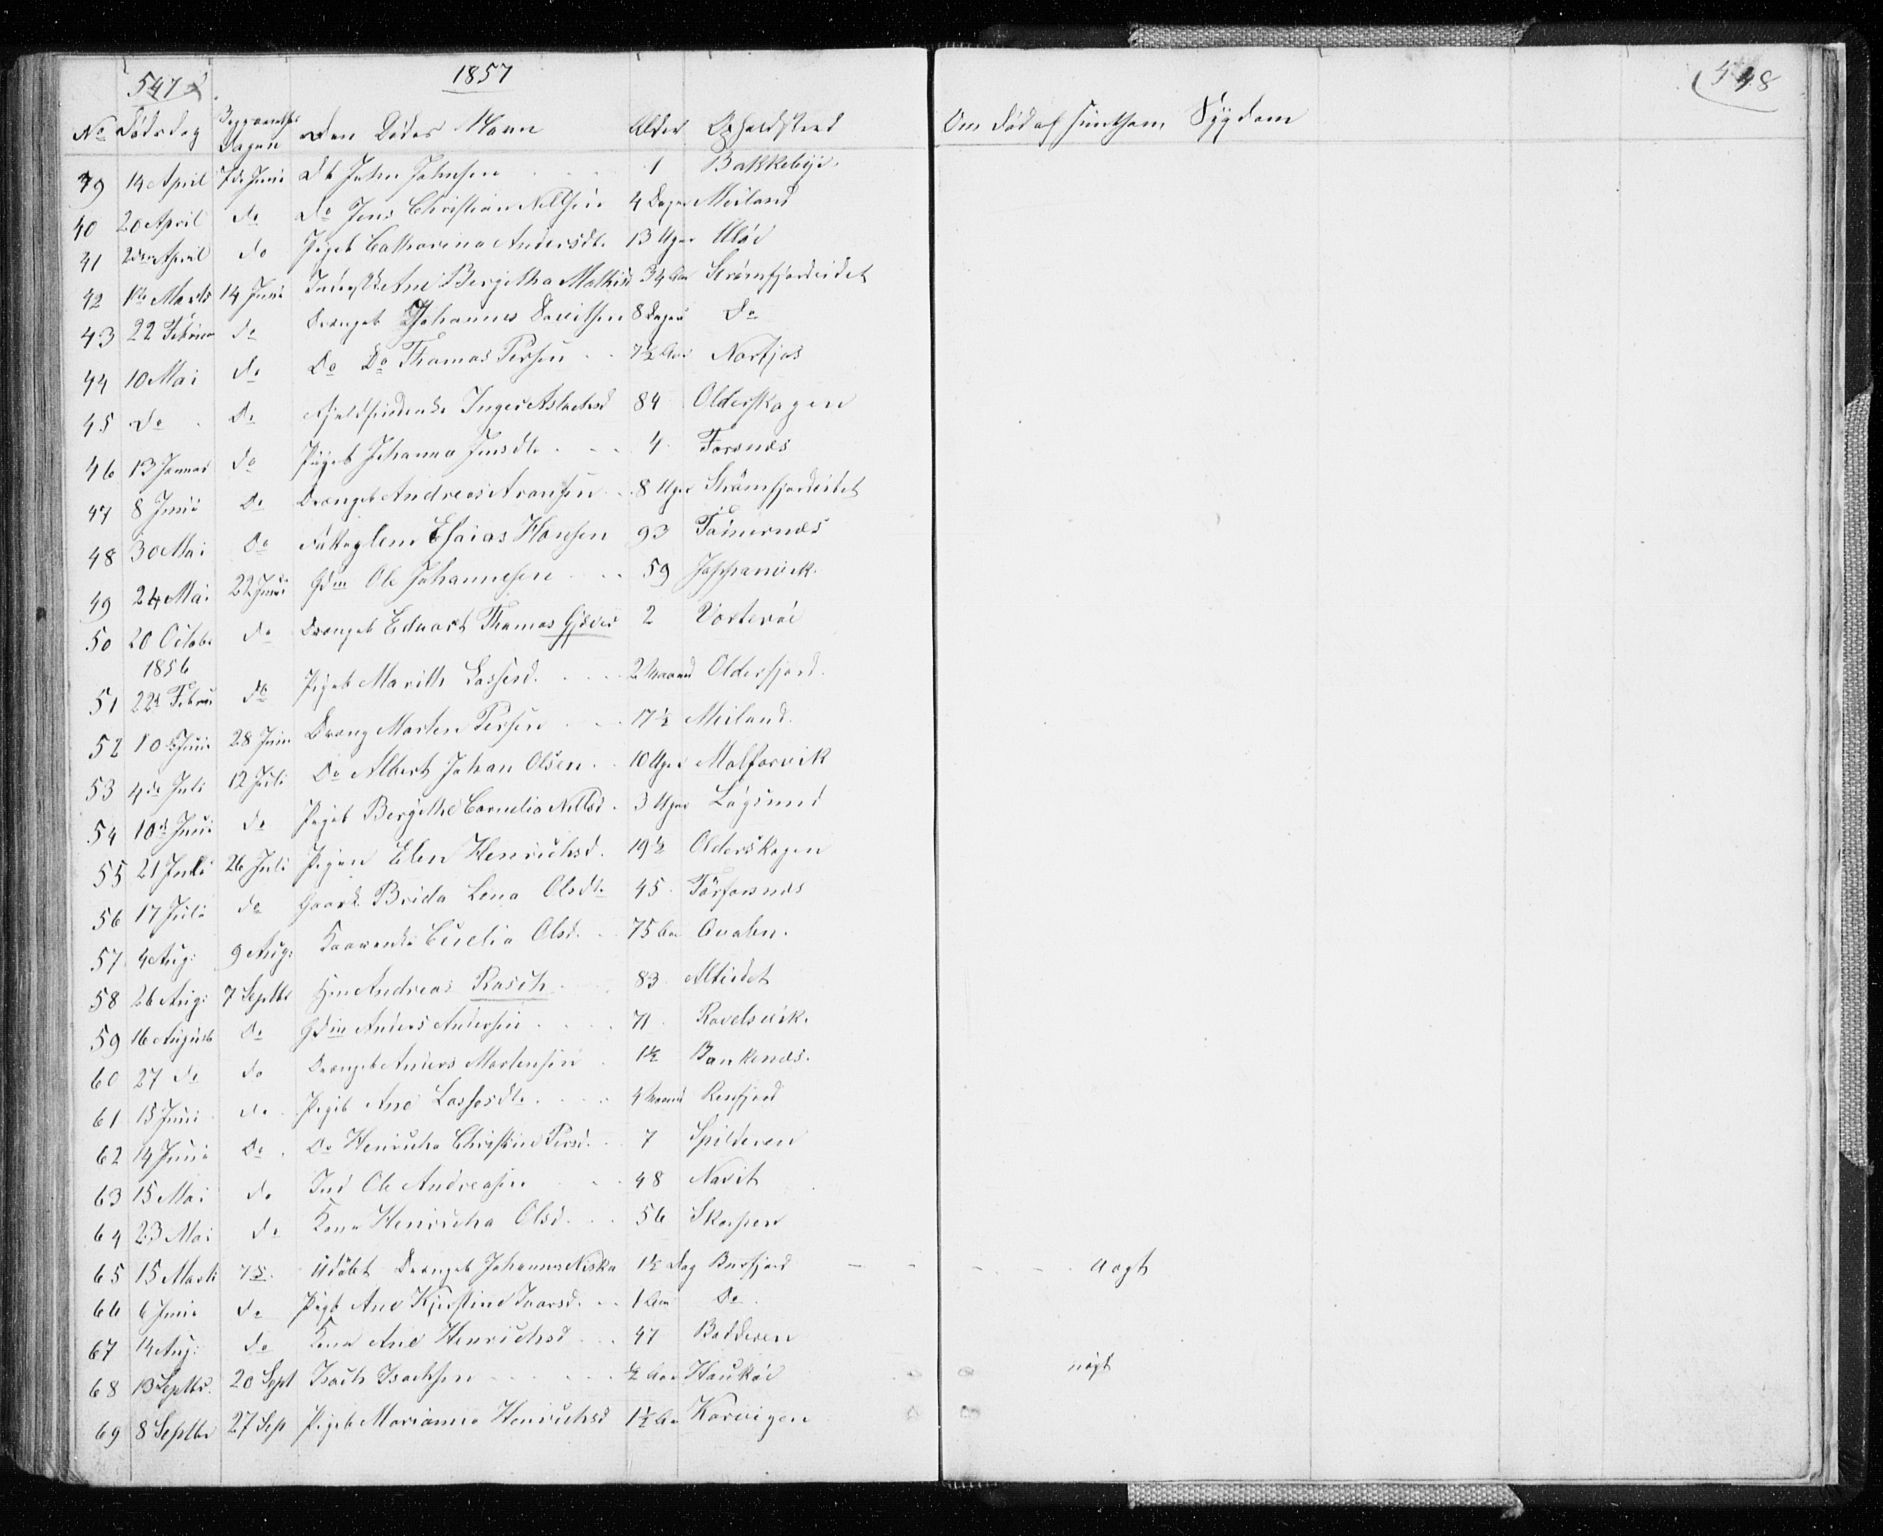 547 1857 548
No Dødsdag Begravelses Dagen Den Dødes Navn Alder Opholdsted Om død af smitsom Sygdom
39 14 April 7de Juni Db John Johnsen 1 Bakkebye.
40 20 April do do Jens Christian Nillsen 4 Dager Meiland
41 2den April do Pigeb Catharina Andersdtr 13 Uger Uløe
42 1ste Marts 14 Juni Ane Bergitha Mathisd 34 Aar Strømfjordeidet
43 22 Februar do Drengeb Johannes Davidsen 8 Dager do
44 10 Mai do Do Do Thomas Persen 7½ Aar Norfjos
45 do Do Fjeldfindenke Inger Aslachsd 84 Olderskogen
46 13 Januar do Pigeb Johanna Jensdtr 4 Forsnæs
47 8 Juni Do Drengeb Andreas Aronsen 8 Uger Strømfjordeidet
48 30 Mai Do Fattiglem Esaias Hansen 93 Taimernæs
49 24 Mai 22 Juni Gdm Ole Johannesen 59
50 20 Octobr do Drengeb Edvart Thomas Gjæver 2 Vorterøe
1856
51 22d Februar do Pigeb Marith Lassesd. 2 Maaned Olderfjord.
52 10de Juni 28 Juni Dreng Morten Persen 17½ Meiland.
53 4de Juli 12 Juli Do Albert Johan Olsen 10 Uger Molforvik
54 10de Juni do Pigeb Bergithe Cornelia Nillsd. 3 Uger Løgsund
55 21 Juli 26 Juli Pigen Elen Henrichsd. 19½ Olderskogen
56 17 Juli do Gaardk Brida Lena Olsdtr 45 Tørfosnæs
57 4 Aug: 9 Aug: Kaarenke Cicelia Olsd. 75 Aar Qvalen.
58 26 Aug: 7 Septbr Hm Andreas Rasch 83 Alteidet
59 16 August Do Gdm Anders Andersen 71 Ravelsvik.
60 27 do do Drengeb Anders Mortensen 1½ Bankenæs.
61 15 Juni do Pigeb Ane Lassesdtr 4 Maaned Reisfjord
62 14 Juni Do Do Henricha Christine Persd. 7 Spilderen
63 15 Mai do Ind Ole Andreasen 48 Navit
64 23 Mai do Kone Henricha Olsd. 56 Skarpen
65 15 Marts 7 S. Udøbt Drengeb Johannes Niska 1½ Dag Burfjord
66 6 Juni do Pigb Ane Kjerstine Ivarsd. 1 Aar Do
67 14 Aug: do Kone Ane Henrichsd 47 Badderen
68 13 Septbr. 20 Sept Isach Isachsen ½ Aar Haukøe
69 8 Septbr 27 Sep Pigeb Marianna Henrichsd 1½ Aar Korvigen